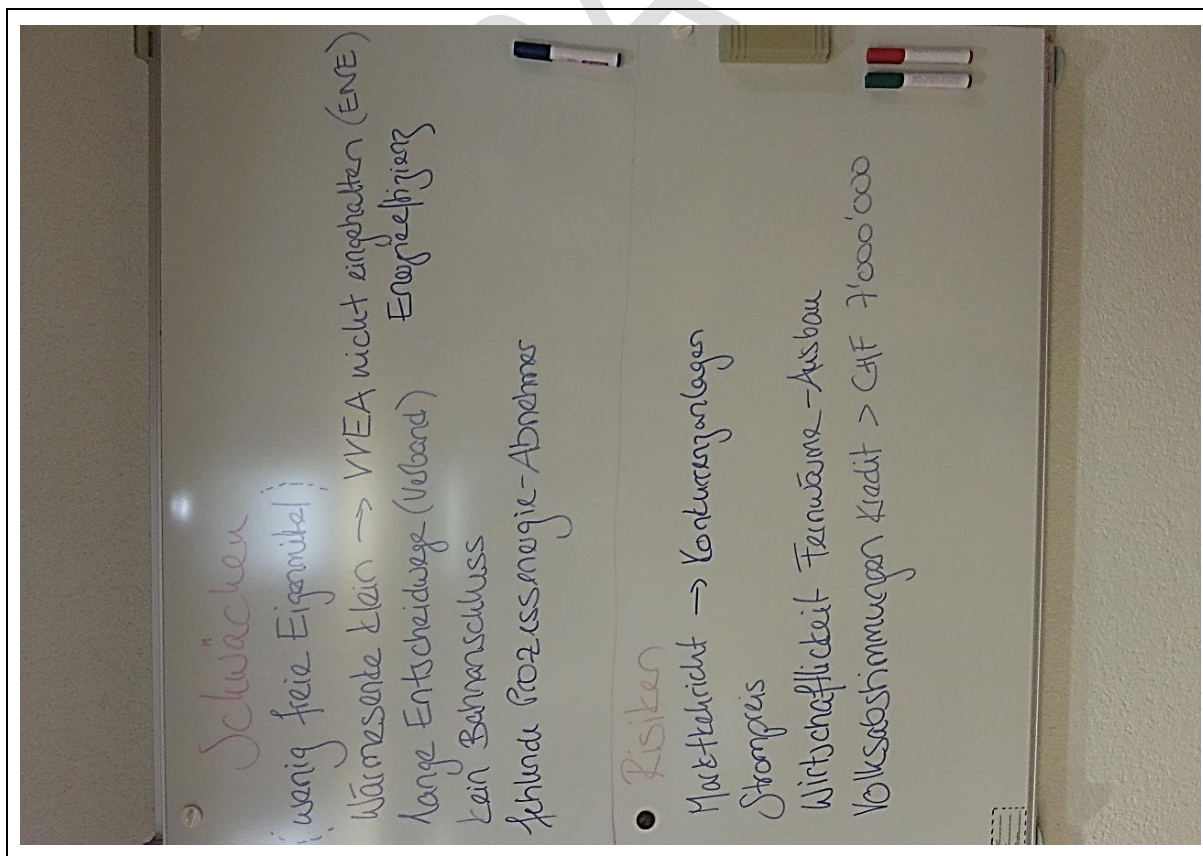 Schwächen
(wenig freie Eigenmittel)
Wärmesenke klein → VVEA nicht eingehalten (ENE)
Energieeffizienz
lange Entscheidwege (Verband)
kein Bahnanschluss
fehlende Prozessenergie-Abnehmer
Risiken
Marktkehricht → Konkurrenzanlagen
Strompreis
Wirtschaftlickeit Fernwärme-Ausbau
Volksabstimmungen Kredit > CHF 7'000'000